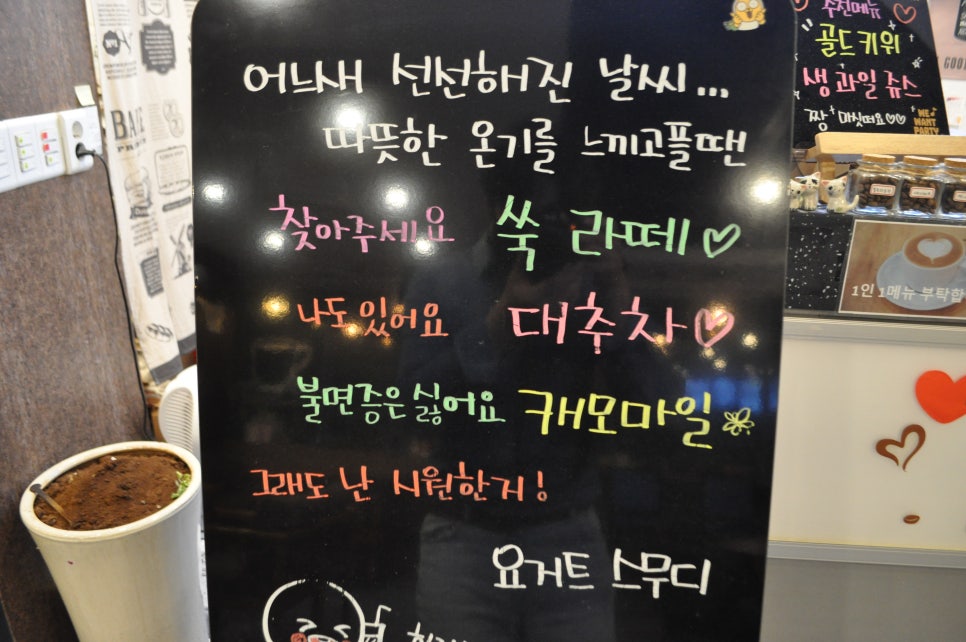 어느새 선선해진 날씨...
따뜻한 온기를 느끼고플땐
찾아주세요 쑥 라떼♡
나도있어요 대추차♡
불면증은싫어요 캐모마일
그래도 난 시원한거!
요거트 스무디
추천메뉴♡
골드키위
생과일쥬스
짱 마싯떠요♡♡
WE WANT PARTY
1인 1메뉴 부탁합